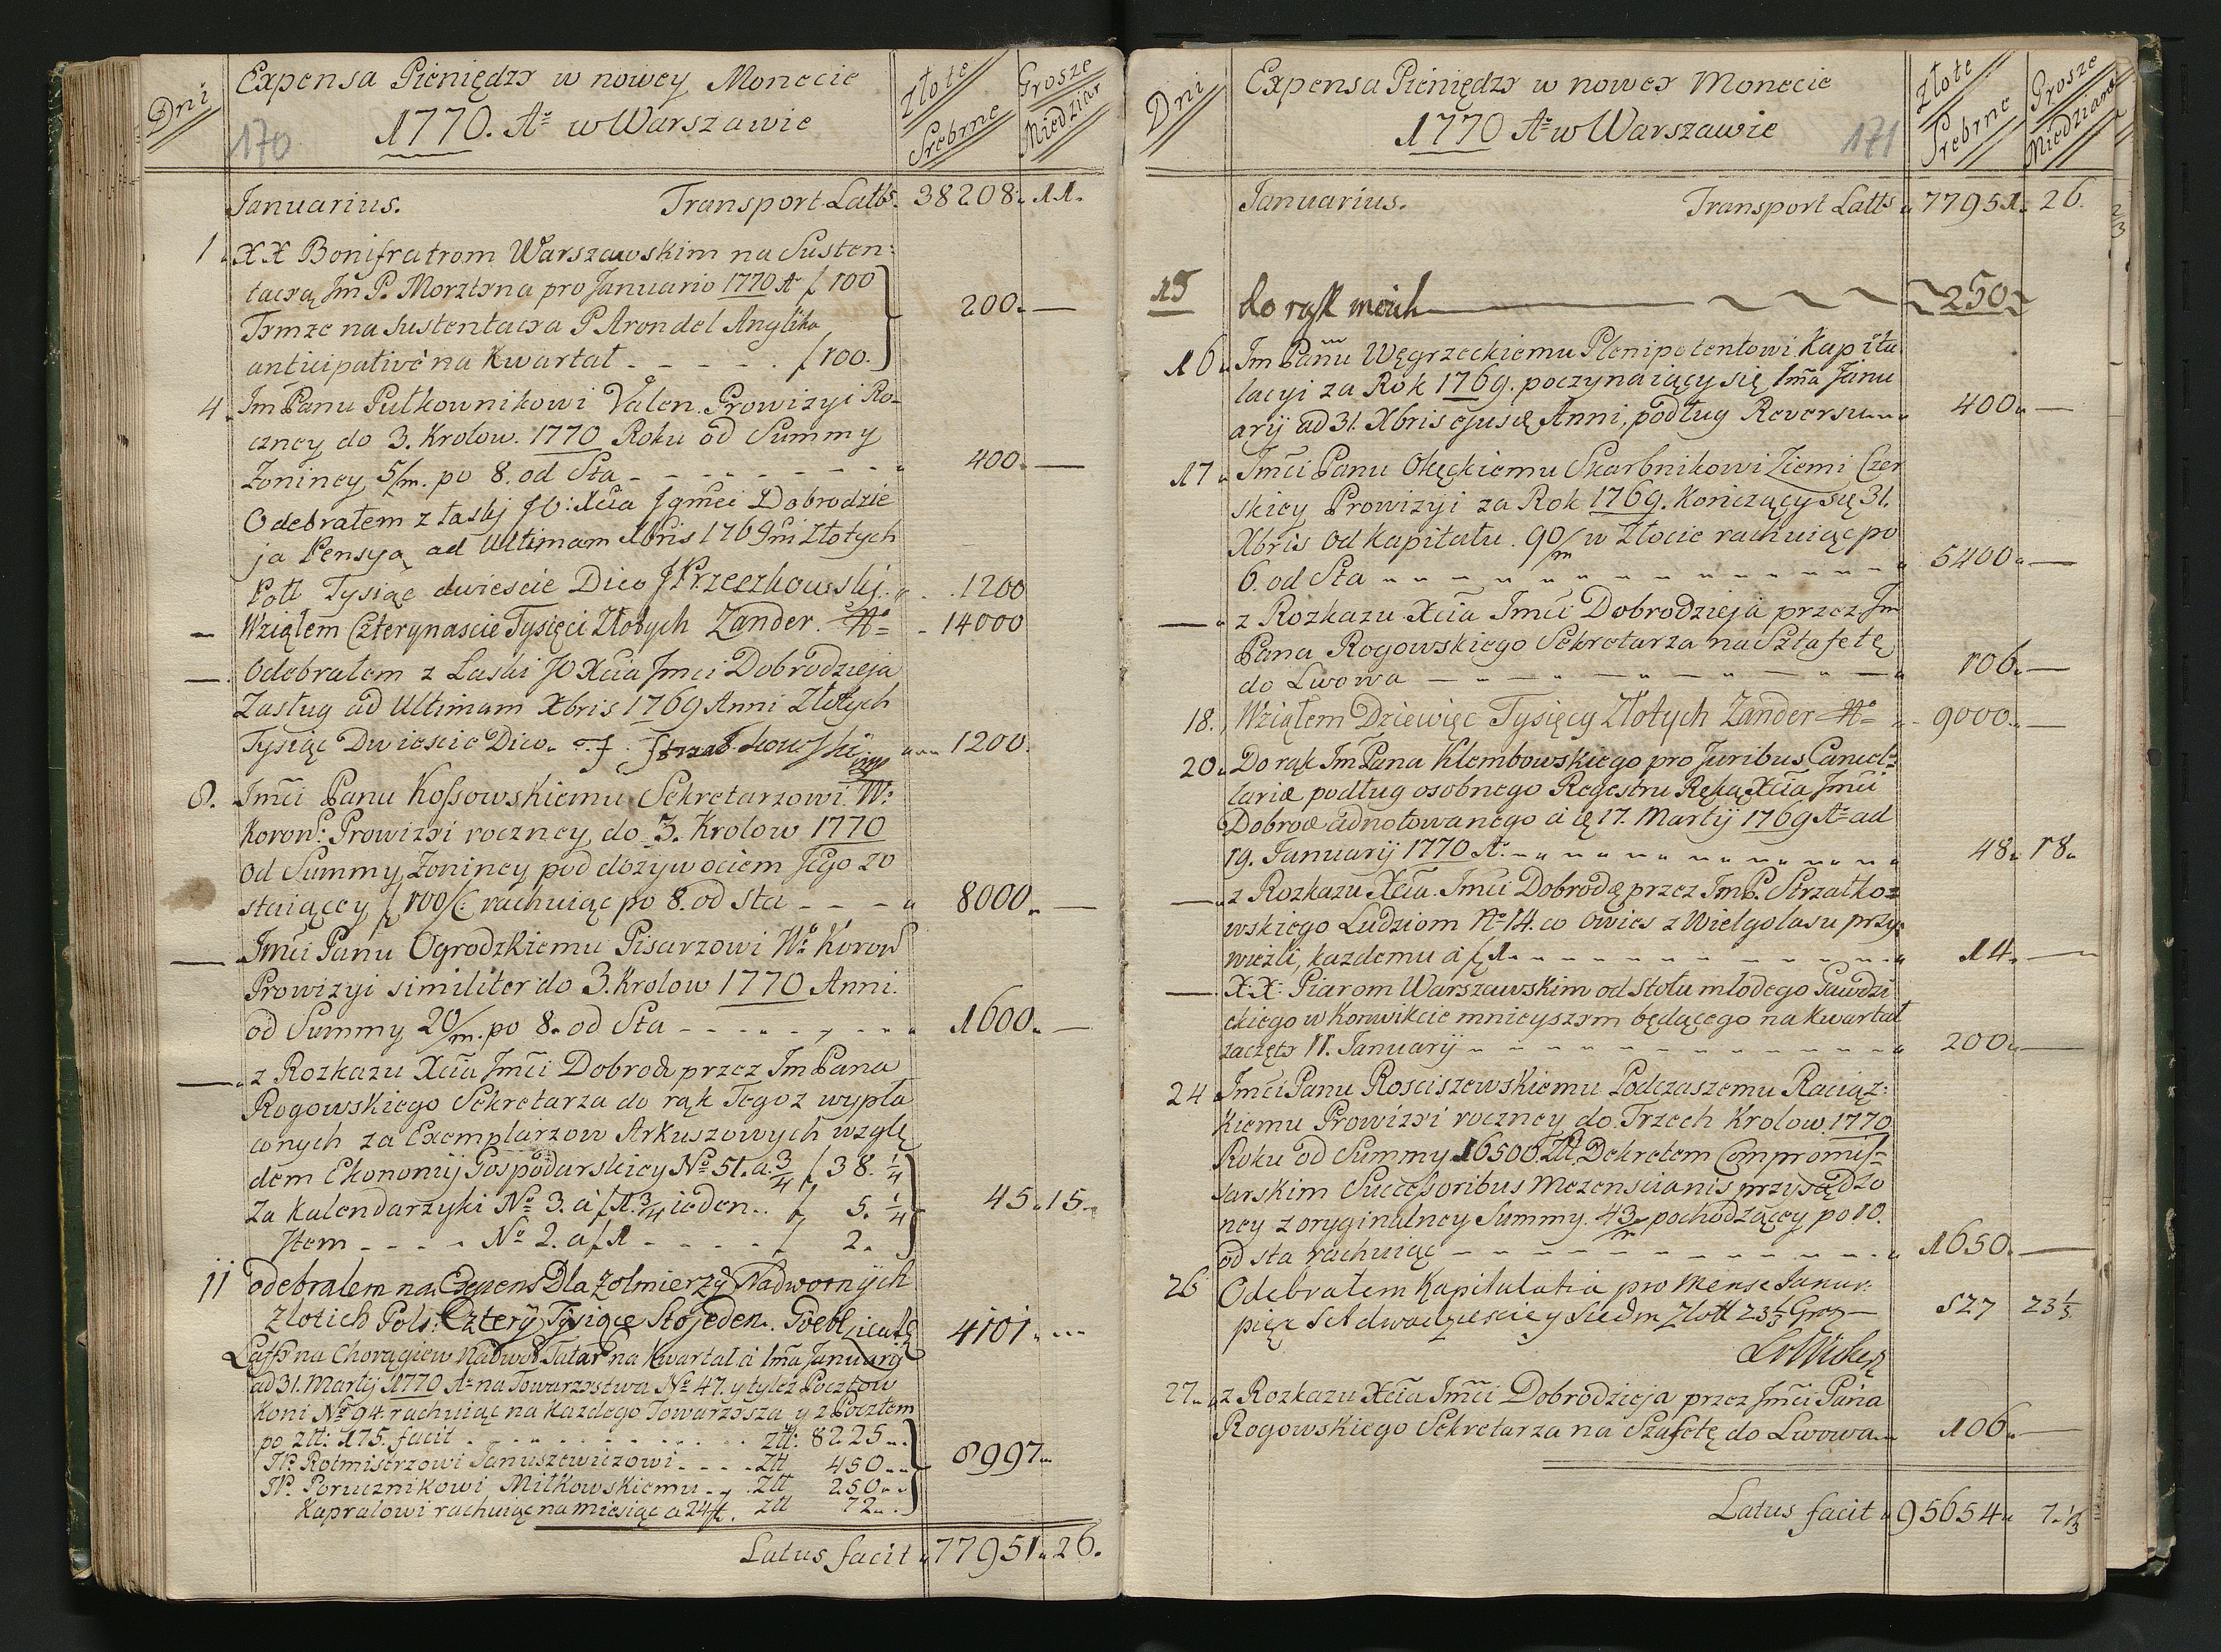 Dni
Expensa Pieniędzy w nowey Monecie
1770. Aº w Warszawie
170
Złote Srebrne
Grosze Miedzian
Januarius. Transport Latts. 38208. 11.
1. XX Bonifratrom Warszawskim na Susten:
tacyą Jm P. Morztyna pro Januario 1770 Aº ƒ 100
Tymze na sustentacya P Arondel Anglika 200. —
anticipativè na Kwartał - - - - - ƒ 100.
4. Jm Panu Pułkownikowi Valen. Prowizyi Ro-
czney do 3. Krolow. 1770 Roku od Summy
Zoniney 5/m. po 8. od Sta - - - - - - - - 400. —
Odebrałem z łaski JO: Xcia Jgmci Dobrodzie
ja Pensyą ad Ultimam Xbris 1769ni Złotych
Poll Tysiąc dwiescie Dico J Przeczkowski. 1200
— Wziąłem Czterynascie Tysięci Złotych Zander. Aº - 14000
— Odebrałem z Łaski JO Xcia Jmci Dobrodzieja
Zasług ad Ultimam Xbris 1769 Anni Złotych
Tysiąc Dwiescie Dico. 1200.
8. Jmci Panu Kossowskiemu Sekretarzowi W:
Koron: Prowizyi roczney do 3. Krolow 1770
od Summy Zoniney pod dozywociem Jego zo
staiącey ƒ 100/C: rachuiąc po 8. od sta - - - 8000. —
— Jmci Panu Ogrodzkiemu Pisarzowi Wº Koron
Prowizyi similiter do 3. Krolow 1770 Anni.
od Summy 20/m. po 8. od Sta - - - - - - - 1600. —
— z Rozkazu Xcia Jmci Dobrod przez Jm Pana
Rogowskiego Sekretarza do rąk Tegoz wypła
conych za Exemplarzow Arkuszowych wzglę
dem Ekonomij Gospodarskiey Nº 51. a ¾ ƒ 38. ¼
Za Kalendarzyki Nº 3. à ƒ 1. ¾ ieden.. ƒ 5. ¼ 45. 15.
Item - - - - Nº 2. a ƒ 1 - - - - - ƒ 2.
11 odebralem na Expens Dla Zolmierzÿ Nadwornÿch
Zlotich Pols: Czterÿ Tysiące Sto Jeden. 4101. ---
Laffs na Chorągiew Nadwor Tatar na Kwartał à 1ma Januarij
ad 31. Martij 1770 Aº na Towarzystwa Nº 47. y tylez Pocztow
Koni Nº 94. rachuiąc na Kazdego Towarzysza y z Pocztem
po złt: 175. facit - - - - - - - - - złt: 8225..
JP. Rotmistrzowi Januszewiczowi - - - - złt 450.. 8997..
JP. Porucznikowi Miłkowskiemu - - złt 250..
Kapralowi rachuiąc na miesiąc a 24 ƒ. złt 72..
Latus facit 77951. 26.
Dni
Expensa Pieniędzy w nowey Monecie
1770 Aº w Warszawie
171
Złote Srebrne
Grosze Miedziane
Januarius. Transport Latts 77951. 26.
15 do rąk moich 250
16. Jm Panu Węgrzeckiemu Plenipotentowi Kapitu
lacyi za Rok 1769. poczynaiący się 1ma Janu
arij ad 31. Xbris ejusdę Anni, podług Reversu... 400. —
17. Jmci Panu Okęckiemu Skarbnikowi Ziemi Czer
skiey Prowizyi za Rok 1769. Kończący się 31.
Xbris Od Kapitału. 90/m w Złocie rachuiąc po
6. od Sta - - - - - - - - - - - - - 5400. —
— z Rozkazu Xcia Jmci Dobrodzieja przez Jm
Pana Rogowskiego Sekretarza na Sztafetę
do Lwowa - - - - - - - - - - 106. —
18. Wziąłem Dziewięc Tysięcy Złotych Zander Aº - 9000. —
20. Do rąk Jm Pana Klembowskiego pro Juribus Cancel:
lariæ podług osobnego Regestru Ręką Xcia Jmci
Dobrod adnotowanego à dę 17. Martij 1769 Aº ad
19. Januarij 1770 Aº. - - - - - - - - - - - 48. 18.
— z Rozkazu Xcia Jmci Dobrodę przez Jm P. Strzałko:
wskiego Ludziom Nº 14. co owies z Wielgolasu przy:
wiezli, kazdemu à ƒ 1. - - - - - - - - - - 14. —
— X:X: Piarom Warszawskim od stołu młodego Gawdzi
ckiego w Konwikcie mnieyszym będącego na kwartał
zaczęty 11. Januarij - - - - - - - - - - 200. —
24 Jmci Panu Rosciszewskiemu Podczaszemu Raciąz:
kiemu Prowizyi roczney do Trzech Krolow 1770
Roku od Summy 16500 Złt, Dekretem Compromis=
sarskim Successoribus Mezenscianis przysądzo
ney z oryginalney Summy. 43/m pochodzącey po 10.
od sta rachuiąc - - - - - - - - - - 1650. —
26 Odebrałem Kapitulatia pro Mense Januar:
pięc Set dwadziescie y siedm Złott 23⅓ Gros — 527 23⅓
27. z Rozkazu Xcia Jmci Dobrodzieja przez Jmci Pana
Rogowskiego Sekretarza na Sztafetę do Lwowa.. 106. —
Latus facit 95654. 7.⅓